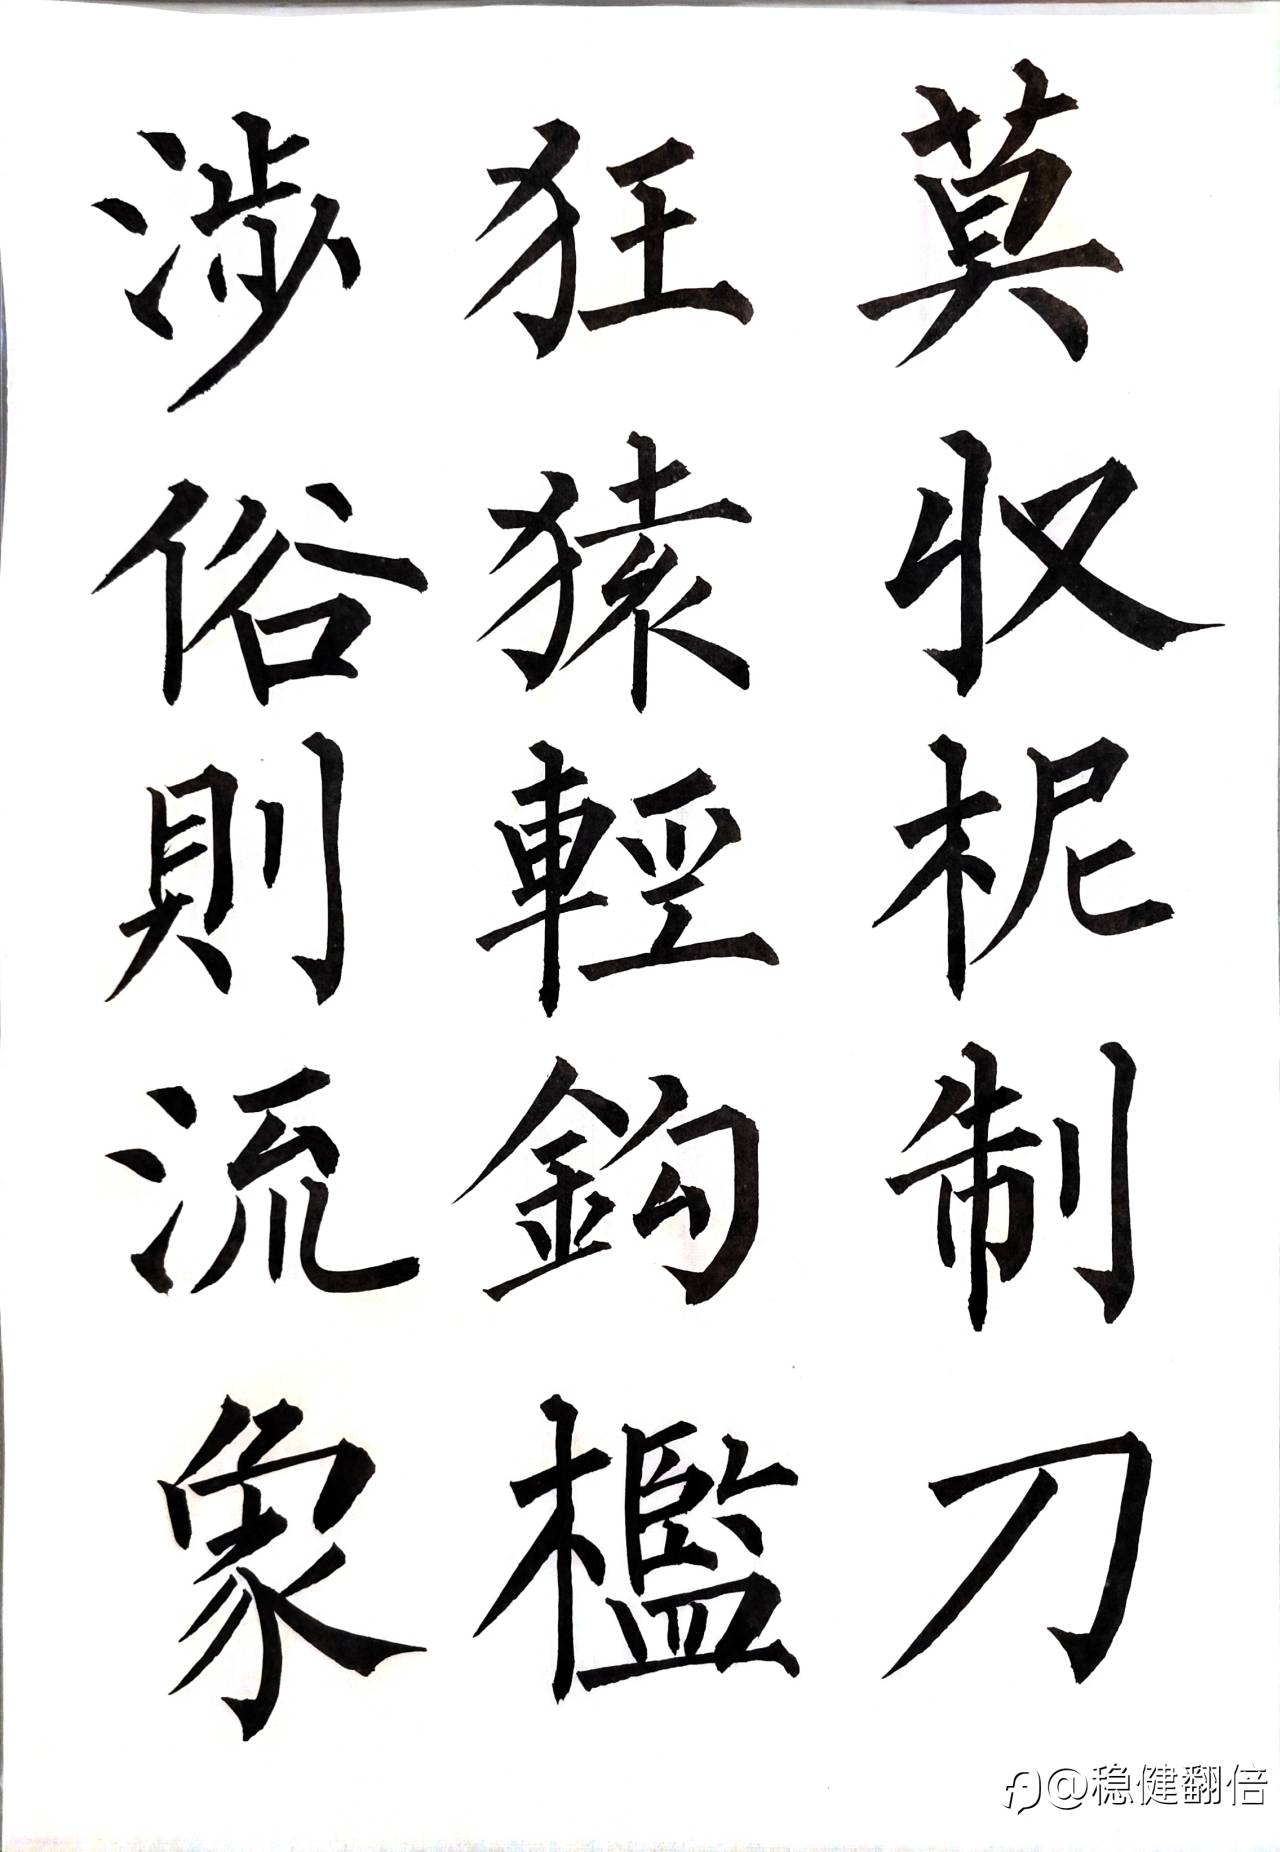 莫収柅制刀
狂猿輕鈎檻
涉俗則流象
@稳健翻倍